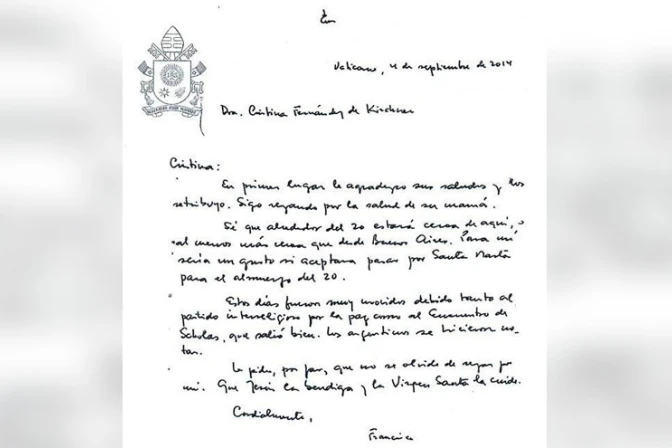 Vaticano, 4 de septiembre de 2014
Dra. Cristina Fernández de Kirchner
Cristina:
En primer lugar le agradezco sus saludos y los
retribuyo. Sigo rezando por la salud de su mamá.
Sé que alrededor del 20 estará cerca de aquí, o
al menos más cerca que desde Buenos Aires. Para mí
sería un gusto si aceptara pasar por Santa Marta
para el almuerzo del 20.
Estos días fueron muy movidos debido tanto al
partido interreligioso por la paz como al Encuentro de
Scholas, que salió bien. Los argentinos se hicieron no-
tar.
Le pido, por favor, que no se olvide de rezar por
mí. Que Jesús la bendiga y la Virgen Santa la cuide.
Cordialmente,
Francisco